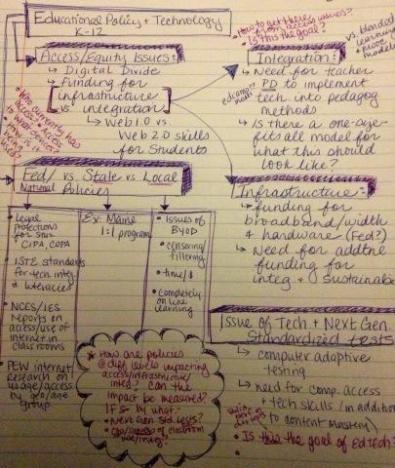 Educational Policy + Technology
K-12
How to get there
from access issues?
Is this the goal?
vs. blended
learning
models
Access/Equity Issues:
↳ Digital Divide
↳ Funding for
infrastructure
vs.
integration
↳ Web 1.0 vs.
Web 2.0 skills
for Students
Integration:
↳ Need for teacher
PD to implement
tech into pedagog
methods
↳ Is there a one-size
fits all model for
what this should
look like?
edcamp
Who currently has
access
to what
Fed/ vs. State vs. Local
National Policies
Infrastructure:
↳ funding for
broadband/width
& hardware (Fed?)
↳ Need for addtnl
funding for
integ + Sustainab
Legal
protections
for
CIPA, COPA
ISTE standards
for tech integ
& literacies
NCES/IES
Reports on
access/use of
internet in
classrooms
PEW internet
research on
usage/access
by geo/age
group
Ex: Maine
1:1 program
Issues of
BYOD
censoring/
filtering
time/$
completely on
line learning
How are policies
@ diff levels impacting
access/infrastructure/
integ? Can the
impact be measured?
If so by what?
Next Gen std. tests?
classroom
Issue of Tech + Next Gen.
Standardized tests
↳ computer adaptive
testing
↳ need for comp. access
+ tech skills (in addition
to content mastery)
Is this the goal of EdTech?